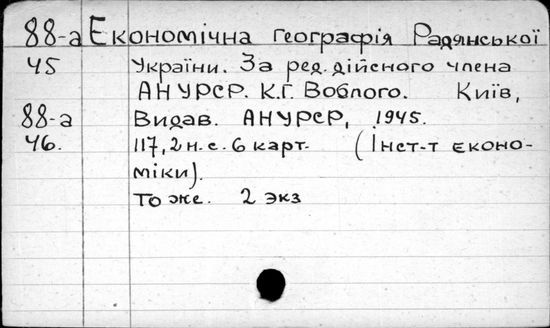 88-а Економічна географія Радянської
45 України. За ред. дійсного члена
АН УРСР. К.Г. Воблого. Київ,
88-а Видав. АН УРСР, 1945.
46. 117, 2 н.с. 6 карт. (Інст-т еконо-
міки).
То же. 2 экз